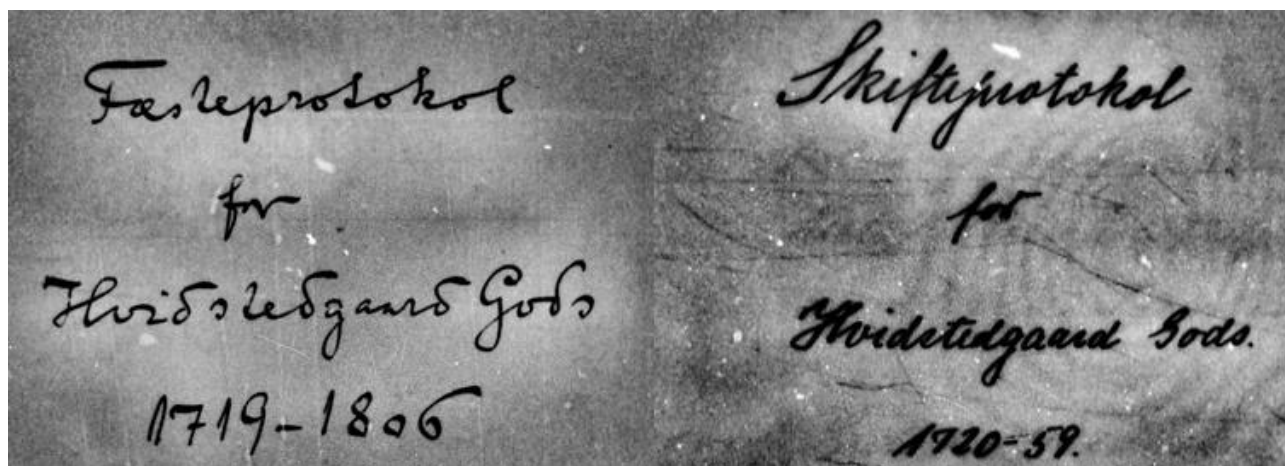 Fæsteprotokol
for
Hvidstedgaard Gods
1719-1806
Skifteprotokol
for
Hvidstedgaard Gods.
1720-59.